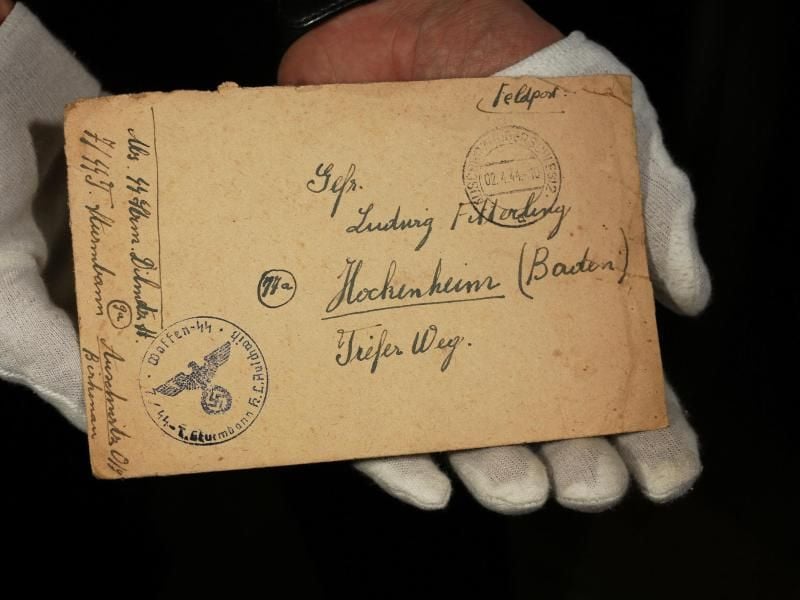 Feldpost.
02.4.44.-10
Gefr.
Ludwig Fitterling
17a
Hockenheim (Baden)
Tiefer Weg.
Abs. SS Strm.
7/SST. Sturmbann 9a Auschwitz O/S
Birkenau
Waffen-SS
7/SS-T. Sturmbann K.L. Auschwitz